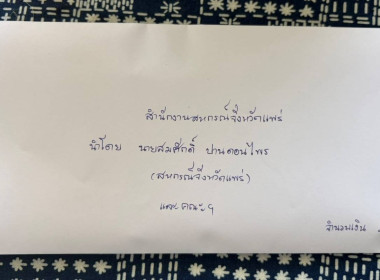 สำนักงานสหกรณ์จังหวัดแพร่
นำโดย นายสมศักดิ์ ปานดอนไพร
(สหกรณ์จังหวัดแพร่)
และคณะฯ
จำนวนเงิน